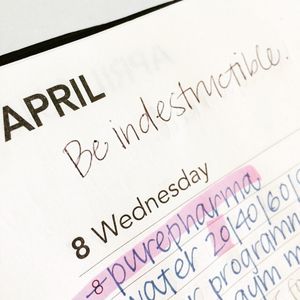 APRIL
Be indestructible.
8 Wednesday
-8- purepharma
water 20|40|60|
programm
gym m